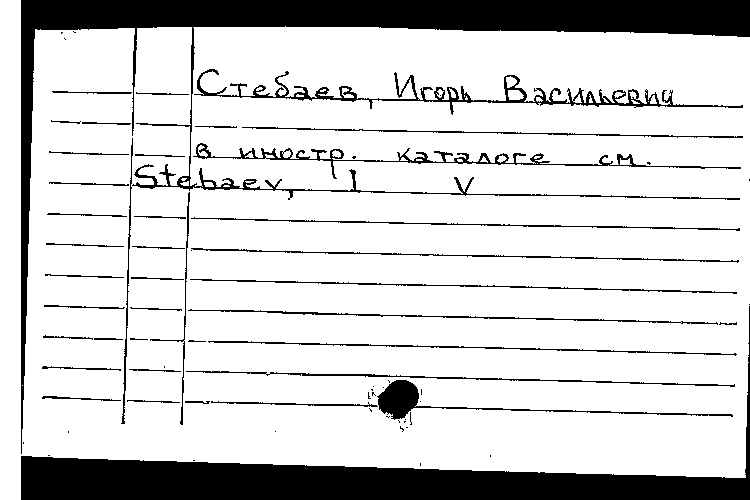 Стебаев, Игорь Васильевич
в иностр. каталоге см.
Stebaev, I V